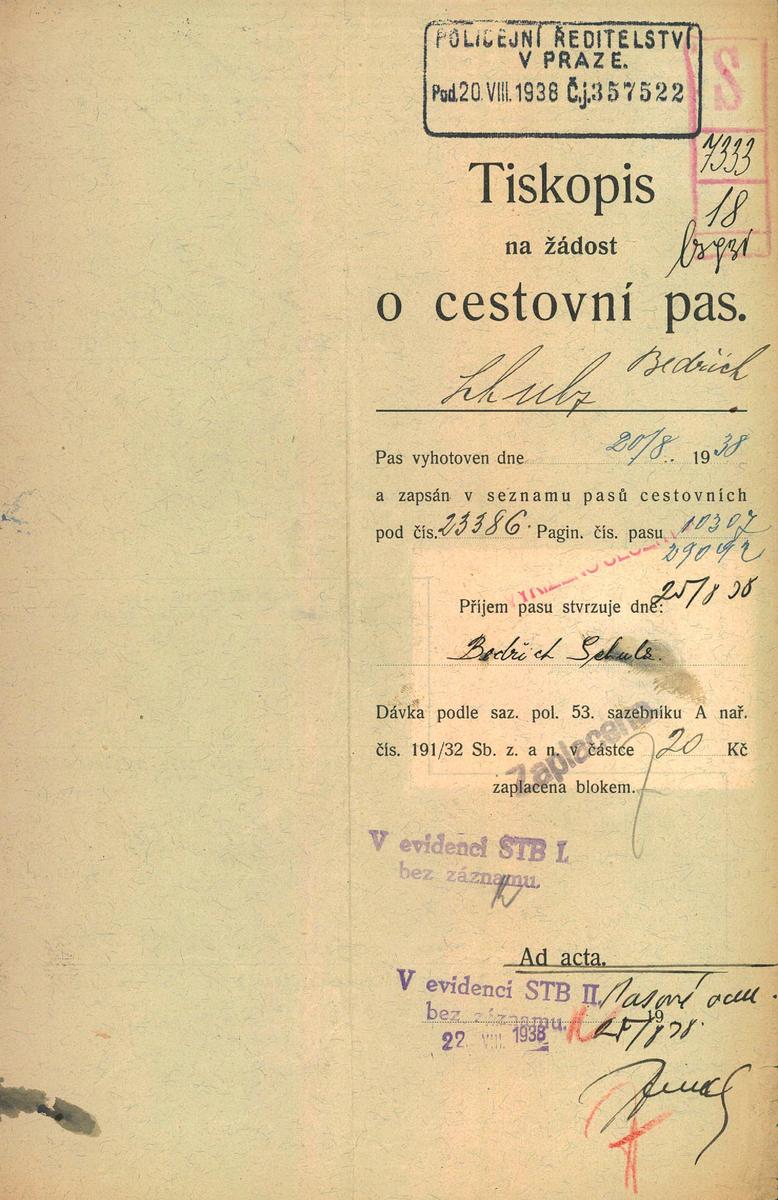 POLICEJNÍ ŘEDITELSTVÍ
V PRAZE.
Pod. 20. VIII. 1938 Č.j. 357522
S
7333
18
Tiskopis
na žádost
o cestovní pas.
Bedřich
Pas vyhotoven dne 20/8 .. 1938
a zapsán v seznamu pasů cestovních
pod čís. 23386. Pagin. čís. pasu 10307
29092
Příjem pasu stvrzuje dne: 25/8 38
Bedřich Schulz.
Dávka podle saz. pol. 53. sazebníku A nař.
čís. 191/32 Sb. z. a n. v částce 20 Kč
Zaplaceno
zaplacena blokem.
V evidenci STB I.
bez záznamu.
Ad acta.
V evidenci STB II.
bez záznamu.
22. VIII. 1938
Pasové
19